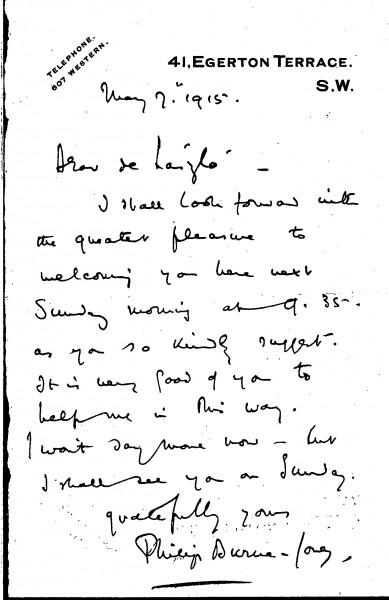 TELEPHONE.
607 WESTERN.
41, EGERTON TERRACE.
S.W.
May 7th 1915.
Dear de László —
I shall look forward with
the greatest pleasure to
welcoming you here next
Sunday morning at 9.35.
as you so kindly suggest.
It is very good of you to
help me in this way.
I won't say more now — but
I shall see you on Sunday.
gratefully yours
Philip Burne-Jones,